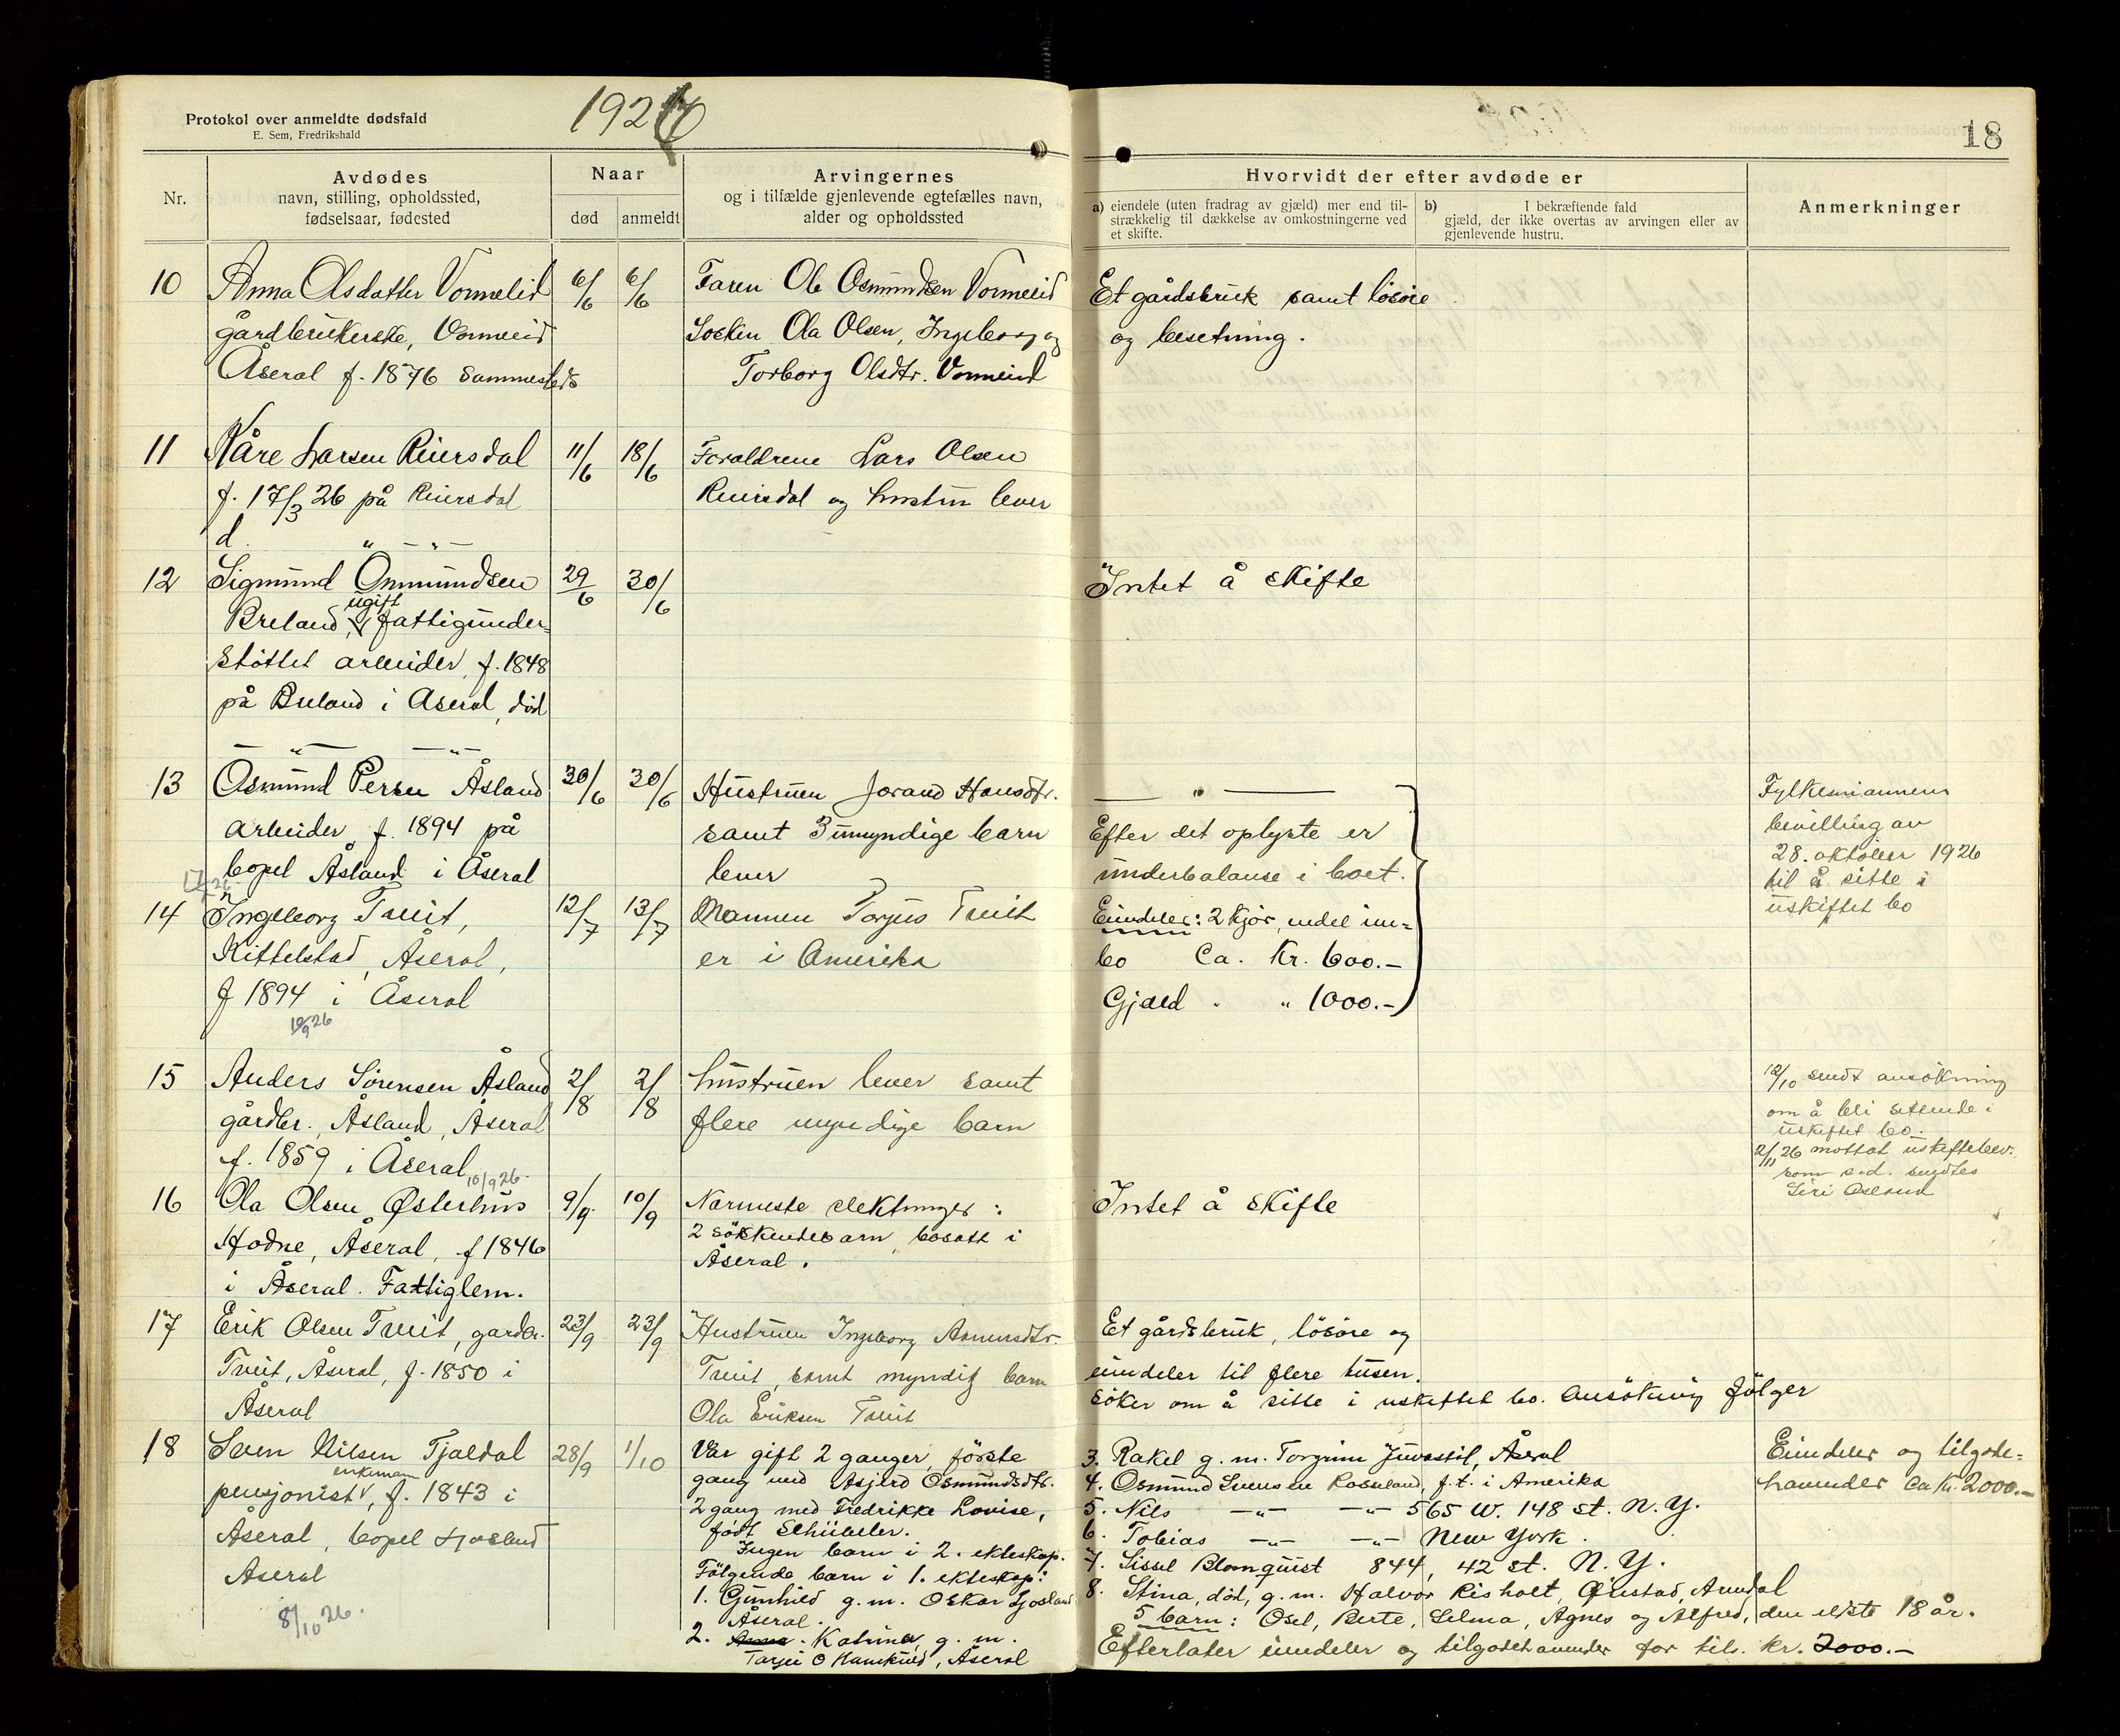 Protokol over anmeldte dødsfald
E. Sem, Fredrikshald
1926
18
Nr.
Avdødes
navn, stilling, opholdssted,
fødselsaar, fødested
Naar
død
anmeldt
Arvingernes
og i tilfælde gjenlevende egtefælles navn,
alder og opholdssted
Hvorvidt der efter avdøde er
a) eiendele (uten fradrag av gjæld) mer end til-
strækkelig til dækkelse av omkostningerne ved
et skifte.
b) I bekræftende fald
gjæld, der ikke overtas av arvingen eller av
gjenlevende hustru.
Anmerkninger
10 Anna Olsdatter Vormelid 6/6 6/6 Faren Ole Osmundsen Vormelid Et gårdsbruk samt lösöre
gårdbrukerske, Vormelid Søsken Ola Olsen, Ingeborg og og besetning.
Åseral f. 1876 sammesteds Torborg Olsdtr. Vormelid
11 Kåre Larsen Reiersdal 11/6 18/6 Foreldrene Lars Olsen
f. 17/3 26 på Reiersdal Reiersdal og hustru lever
d. — " — " —
12 Sigmund Onmundsen 29/6 30/6 Intet å skifte
Breland, ugift fattigunder=
støttet arbeider, f. 1848
på Breland i Åseral, död
— " — — " —
13 Osmund Persen Åsland 30/6 30/6 Hustruen Jorand Hansdtr. — " —
arbeider, f. 1894 på samt 3 umyndige barn Efter det oplyste er
bopel Åsland i Åseral lever underbalanse i boet.
Fylkesmannens
bevilling av
28. oktober 1926
til å sitte i
uskiftet bo
14 Ingeborg Tveit, 12/7 13/7 Mannen Torjus Tveit Eiendeler: 2 kjör, endel inn=
Kittelstad, Åseral, er i Amerika bo Ca. Kr. 600.—
f 1894 i Åseral Gjæld " " 1000.—
10/9 26
15 Anders Sørensen Åsland 2/8 2/8 hustruen lever samt
gårdbr. Åsland, Åseral flere myndige barn
f. 1859 i Åseral 10/9 26.
12/10 sendt ansökning
om å bli sittende i
uskiftet bo.
2/11 26 mottat uskiftebev.
som s.d. sendtes
Siri Åsland
16 Ola Olsen Østerhus 9/9. 10/9 Nærmeste slektninger: Intet å skifte
Hodne, Åseral, f 1846 2 søskendebarn, bosatt i
i Åseral. Fattiglem. Åseral.
17 Erik Olsen Tveit, gardbr. 23/9 23/9 Hustruen Ingeborg Asmundsdtr. Et gårdsbruk, lösöre og
Tveit, Åseral, f. 1850 i Tveit, samt myndig barn eiendeler til flere tusen.
Åseral Ola Eriksen Tveit söker om å sitte i uskiftet bo. Ansökning fölger
18 Sven Nilsen Tjaldal 28/9 1/10
enkemann
pensjonist, f. 1843 i
Åseral, bopel Ljosland
Åseral
8/10 26.
Var gift 2 ganger, förste
gang med Asjerd Osmundsdtr.
2 gang med Fredrikke Lovise,
født Schübeler.
Ingen barn i 2. ekteskap.
Fölgende barn i 1. ekteskap:
1. Gunhild g. m. Oskar Ljosland
Åseral.
2. Anna. Katrine, g. m.
Tarjei O Kamkvid, Åseral
3. Rakel g. m. Torgrim Juvastöl, Åseral
4. Osmund Svensen Rosseland, f. t. i Amerika
5. Nils — " — — " — 565 W. 148 St. N. Y.
6. Tobias — " — — " — New York.
7. Sissel Blomquist 844, 42 St. N. Y.
8. Stina, död, g. m. Halvor Risholt, Øiestad, Arendal
5 barn: Osel, Berte, Selma, Agnes og Alfred, den elste 18 år.
Efterlater eiendeler og tilgodehavender for tils. kr. 2000.—
Eiendeler og tilgode=
havender ca kr. 2000.—